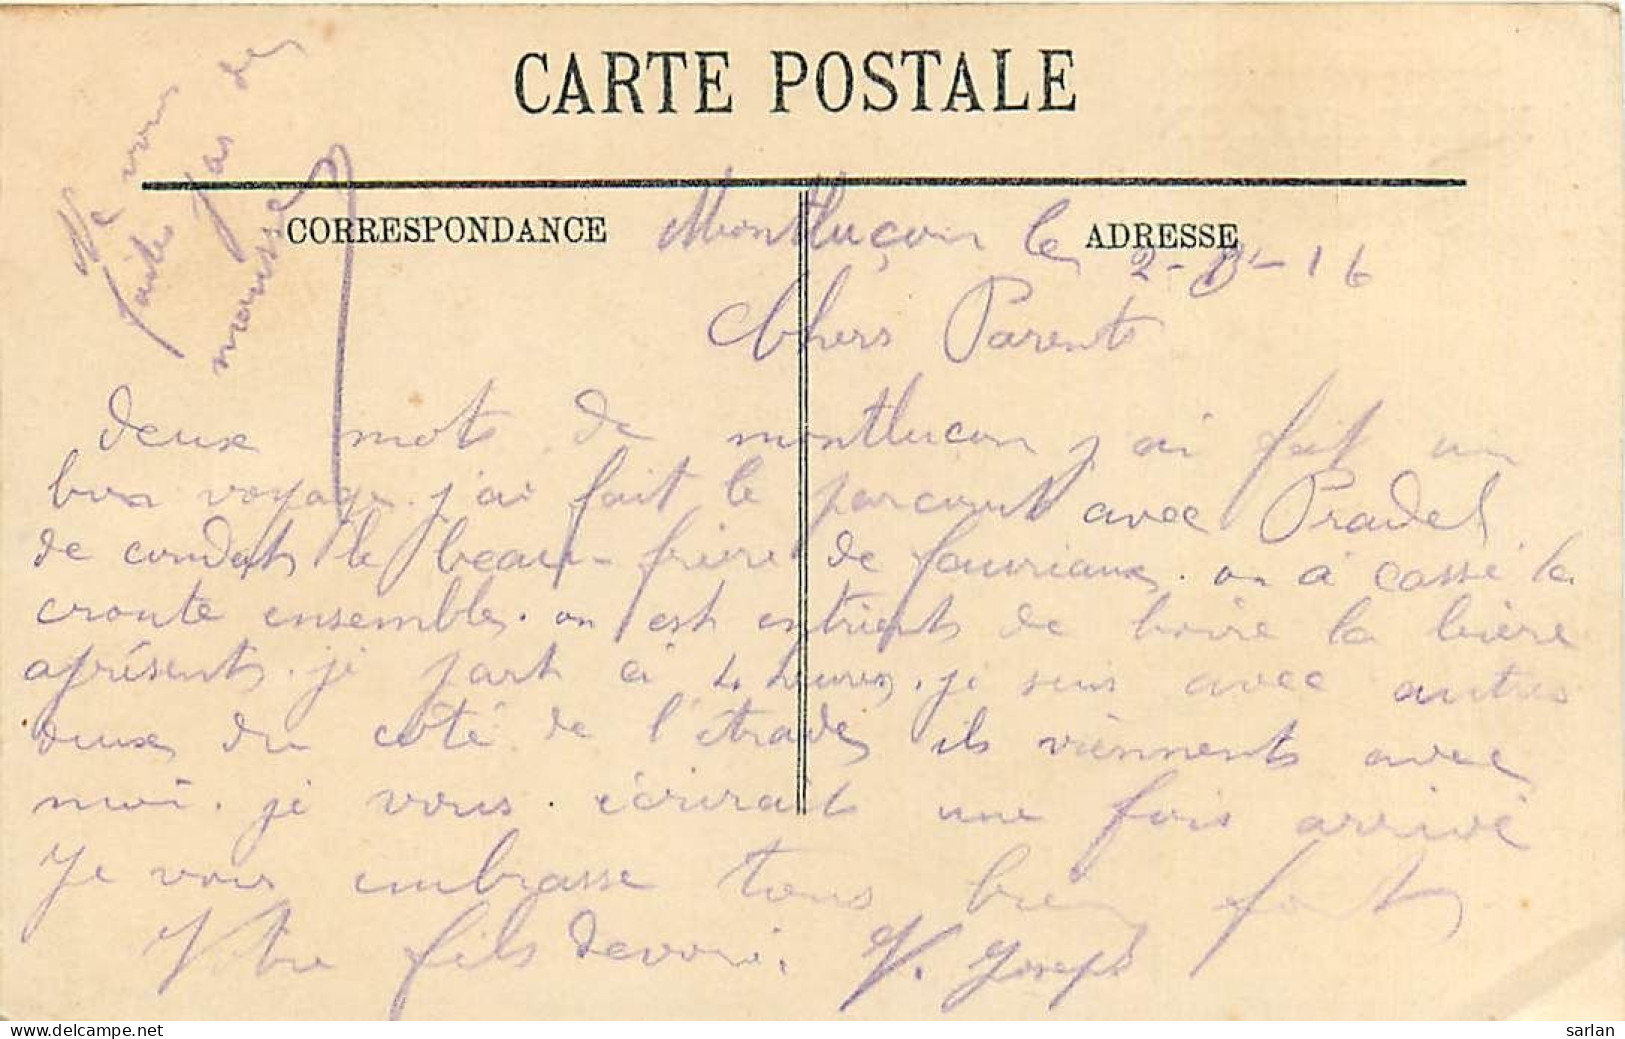 CARTE POSTALE
CORRESPONDANCE
ADRESSE
Montluçon le 2-8-16
Chers Parents
deux mots de montlucon j'ai fait un
bon voyage. j'ai fait le parcourt avec Pradel
de condat le beau-frère de fauriaux. on à cassé la
croute ensemble. on est entrients de boire la bière
aprésent. je part à 4 heures. je suis avec autres
deux du coté de l'étrade ils viennents avec
moi. je vous écrirait une fois arrivé
Je vous embrasse tous bien fort
Votre fils devoué. V. Joseph
Ne vous
faites pas de
mousse
delcampe.net
sarlan